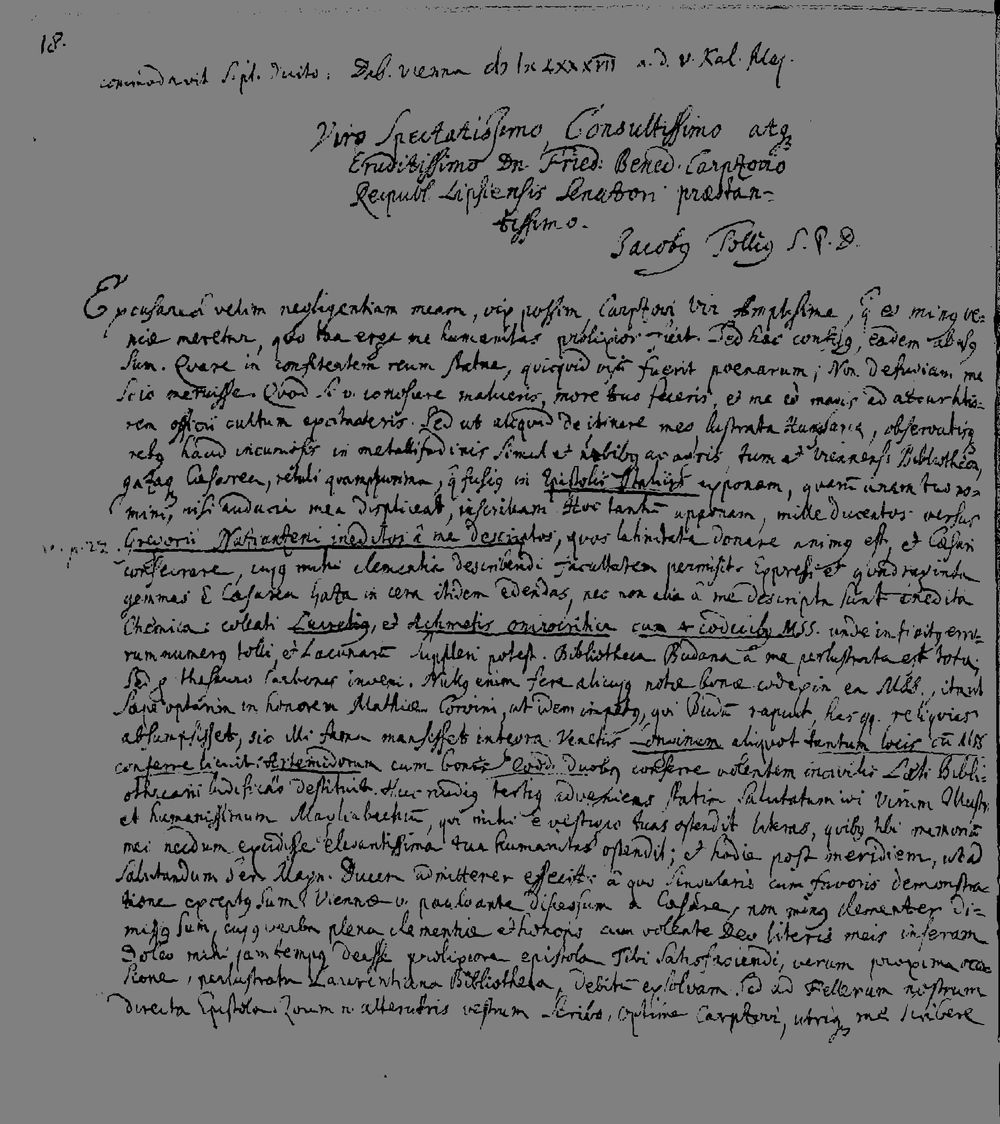 18.
commodavit S.pl. Dab. Vienna LXXXVII a.d. v. Kal. Maj.
Viro Spectatissimo, Consultissimo atq
Eruditissimo Dn. Fried. Bened. Carpzovio
Reipubl. Lipsiensis Senatori præstan-
tissimo.
Jacobg Tollig S. P. D.
Excusare velim negligentiam meam, vix possim, Carpzovi Vir Amplissime, q eo ming ve-
niæ meretur, quo tua erga me humanitas prolixior fuit. Sed hac eadem
Sum. Quare in confitentem reum statue, quicquid visũ fuerit poenarum; Non me
scio meruisse. Quod si v. malueris, more tuo feceris, et me eo magis ad
rem officii cultum Sed ut aliquid de itinere meo, lustrata Hungaria, observatisq
rebg haud in metallifodinis simul et tum et Viennensi Bibliotheca,
gazaq Cæsarea, retuli quamplurima, q fusig in Epistolis Italicis exponam, quarũ unam tuo no-
mini, nisi audacia mea displiceat, inscribam. Hoc tantũ apponam, mille ducentos versus
v. p. 27. Gregorii Nazianzeni ineditos â me descriptos, quos latinitate donare animg est, et Cæsari
consecrare, cujg mihi clementia describendi facultatem permisit. Expressi et quadraginta
gemmas è Cæsarea Gaza in cera itidem edendas, nec non alia â me descripta sunt inedita
Chemica: et Achmetis onirocritica cum 4 codicibg MSS. unde infinitg erro-
rum numerg tolli, et Lacunarũ suppleri potest. Bibliotheca Budana â me perlustrata est tota;
Sed p thesauro carbones inveni. Nullg enim fere alicujg notæ bonæ codex in ea MSS., ita ut
sæpe optarim in honorem Mathiæ Corvini, ut idem impetg, qui Budã rapuit, has qq. reliquias
absumpsisset, sic illi fama mansisset integra. Venetiis aliquot tantum locis cũ MSS
conferre licuit: Artemidorum cum bonis Codd. duobg conferre volentem incivilis Bibli-
othecarii destituit. Huc nudig tertig adveniens statim salutatum ivi virum Illustr.
et humanissimum Magliabechiũ, qui mihi e vestigio tuas ostendit literas, quibg tibi memoriã
mei necdum excidisse elegantissima tua humanitas ostendit; et hodie post meridiem, ut ad
salutandum Magn. Ducem admitterer effecit: â quo singularis cum favoris demonstra-
tione exceptg sum. Viennæ v. paulo ante discessum a Cæsare, non ming clementer di-
missg sum, cujg verba plena clementiæ et honoris cum volente Deo literis meis inseram
Doleo mihi jam tempg deesse prolixiore epistola Tibi satisfaciendi, verum proxima occa-
sione, perlustrata Laurentiana Bibliotheca, debitũ exsolvam. Sed ad Fellerum nostrum
directa Epistola. n. alterutris vestrum scribo, optime Carpzovi, utriq me scribere